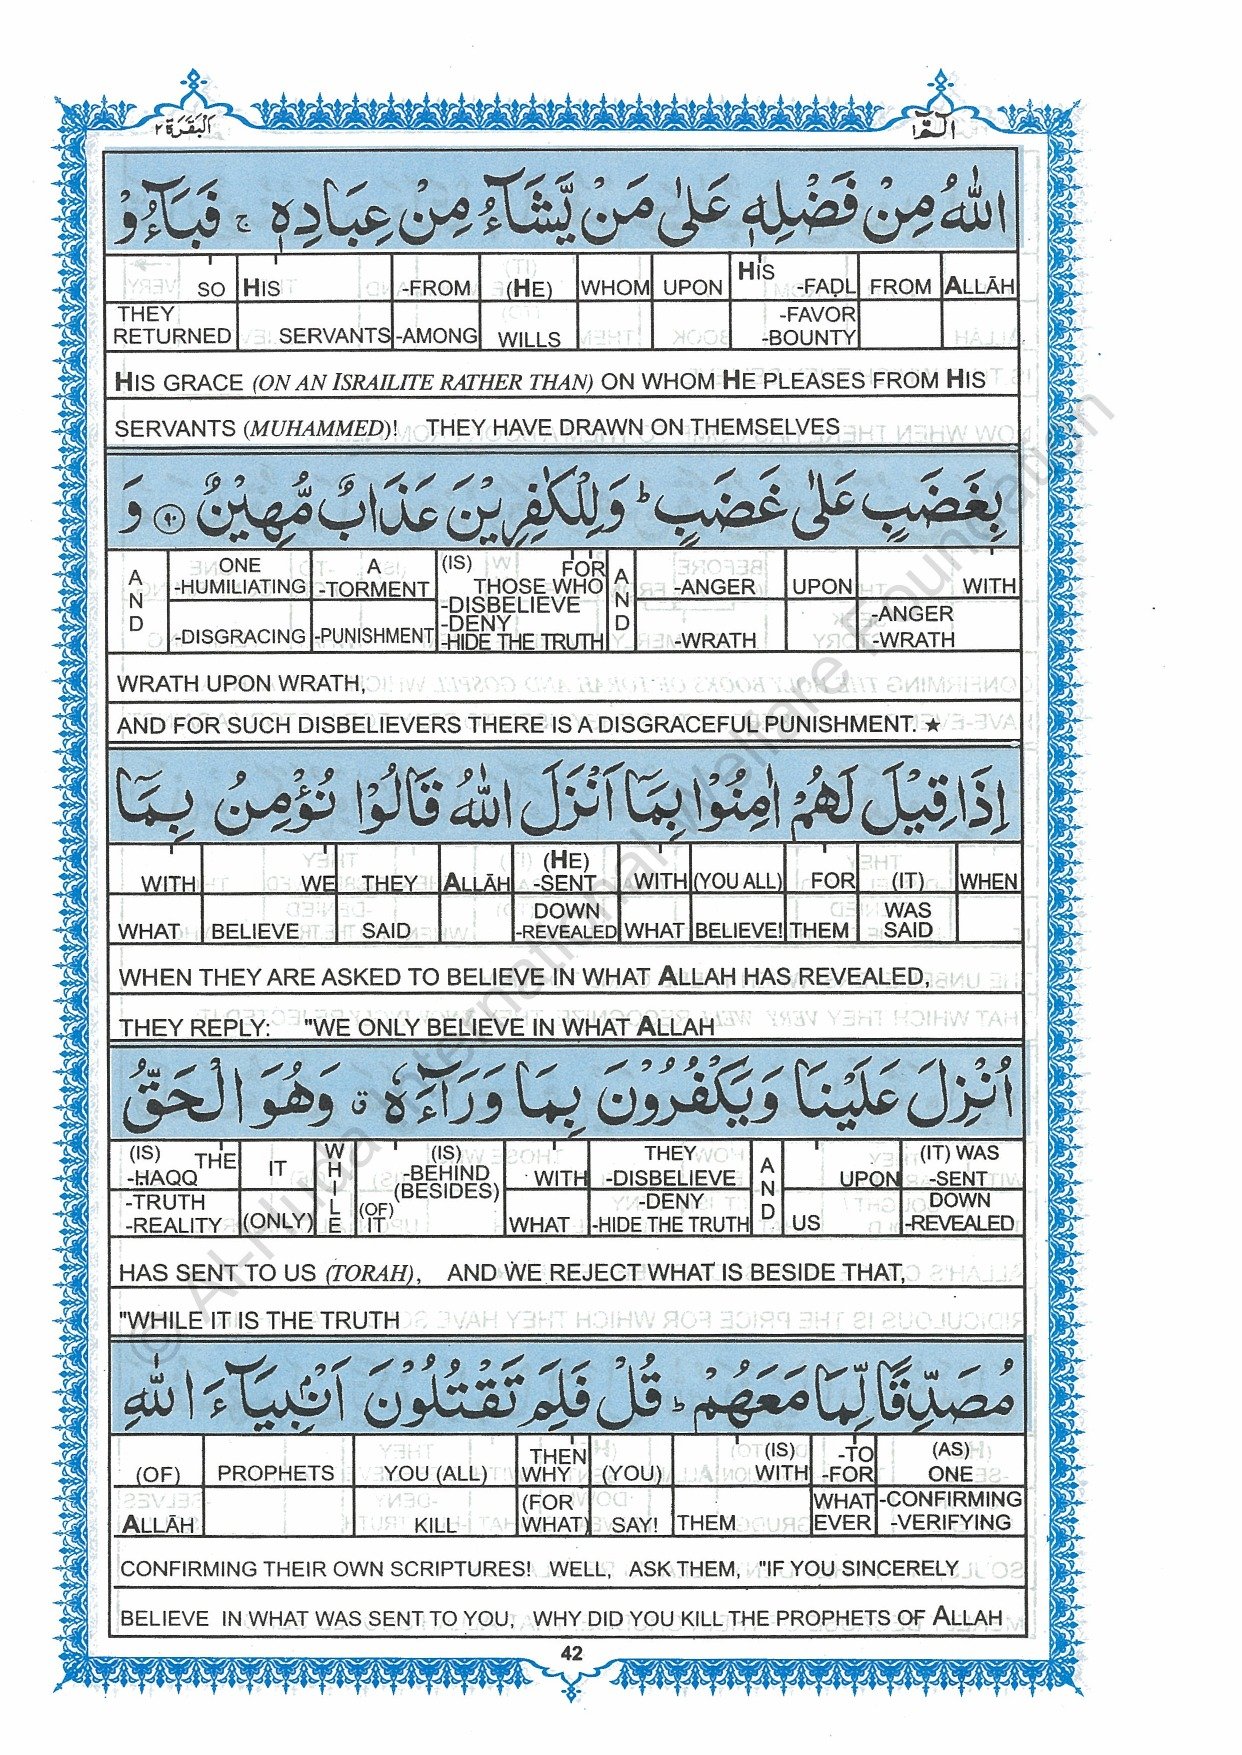 البقرة ٢
الٓمّٓ ١
اللّٰهُ مِنْ فَضْلِهٖ عَلٰى مَنْ يَّشَآءُ مِنْ عِبَادِهٖ ۚ فَبَآءُوْ
SO HIS -FROM (HE) WHOM UPON HIS -FAḌL FROM ALLĀH
THEY RETURNED SERVANTS -AMONG WILLS -FAVOR -BOUNTY
HIS GRACE (ON AN ISRAILITE RATHER THAN) ON WHOM HE PLEASES FROM HIS
SERVANTS (MUHAMMED)! THEY HAVE DRAWN ON THEMSELVES
بِغَضَبٍ عَلٰى غَضَبٍ ؕ وَلِلْكٰفِرِيْنَ عَذَابٌ مُّهِيْنٌ ۹۰ وَ
AND ONE -HUMILIATING A -TORMENT (IS) FOR THOSE WHO AND -ANGER UPON WITH
-DISGRACING -PUNISHMENT -DISBELIEVE -DENY -HIDE THE TRUTH -WRATH -ANGER -WRATH
WRATH UPON WRATH,
AND FOR SUCH DISBELIEVERS THERE IS A DISGRACEFUL PUNISHMENT. ★
اِذَا قِيْلَ لَهُمْ اٰمِنُوْا بِمَآ اَنْزَلَ اللّٰهُ قَالُوْا نُؤْمِنُ بِمَآ
WITH WE THEY ALLĀH (HE) -SENT WITH (YOU ALL) FOR (IT) WHEN
WHAT BELIEVE SAID DOWN -REVEALED WHAT BELIEVE! THEM WAS SAID
WHEN THEY ARE ASKED TO BELIEVE IN WHAT ALLAH HAS REVEALED,
THEY REPLY: "WE ONLY BELIEVE IN WHAT ALLAH
اُنْزِلَ عَلَيْنَا وَيَكْفُرُوْنَ بِمَا وَرَآءَهٗ ۗ وَهُوَ الْحَقُّ
(IS) THE -ḤAQQ IT WHILE (IS) -BEHIND (BESIDES) WITH THEY -DISBELIEVE AND UPON (IT) WAS -SENT
-TRUTH -REALITY (ONLY) (OF) IT WHAT -DENY -HIDE THE TRUTH US DOWN -REVEALED
HAS SENT TO US (TORAH), AND WE REJECT WHAT IS BESIDE THAT,
"WHILE IT IS THE TRUTH
مُصَدِّقًا لِّمَا مَعَهُمْ ؕ قُلْ فَلِمَ تَقْتُلُوْنَ اَنْۢبِيَآءَ اللّٰهِ
(OF) PROPHETS YOU (ALL) THEN WHY (YOU) (IS) WITH -TO -FOR (AS) ONE
ALLĀH KILL (FOR WHAT) SAY! THEM WHAT EVER -CONFIRMING -VERIFYING
CONFIRMING THEIR OWN SCRIPTURES! WELL, ASK THEM, "IF YOU SINCERELY
BELIEVE IN WHAT WAS SENT TO YOU, WHY DID YOU KILL THE PROPHETS OF ALLAH
42
© Al-Huda International Welfare Foundation